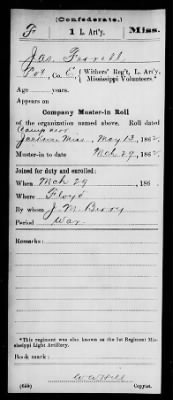 (Confederate.)
F 1 L. Art'y. Miss.
Jas. Ferrell
Pvt, Co. E, { Withers' Reg't, L. Art'y, Mississippi Volunteers.*
Age years.
Appears on
Company Muster-in Roll
of the organization named above. Roll dated
Camp near
Jackson Miss, May 13, 1862.
Muster-in to date Mch 29, 1862.
Joined for duty and enrolled:
When Mch 29, 186 .
Where Floyd
By whom J. M. Berry
Period War
Remarks:
*This regiment was also known as the 1st Regiment Mississippi Light Artillery.
Book mark:
W W Hill
(635) Copyist.